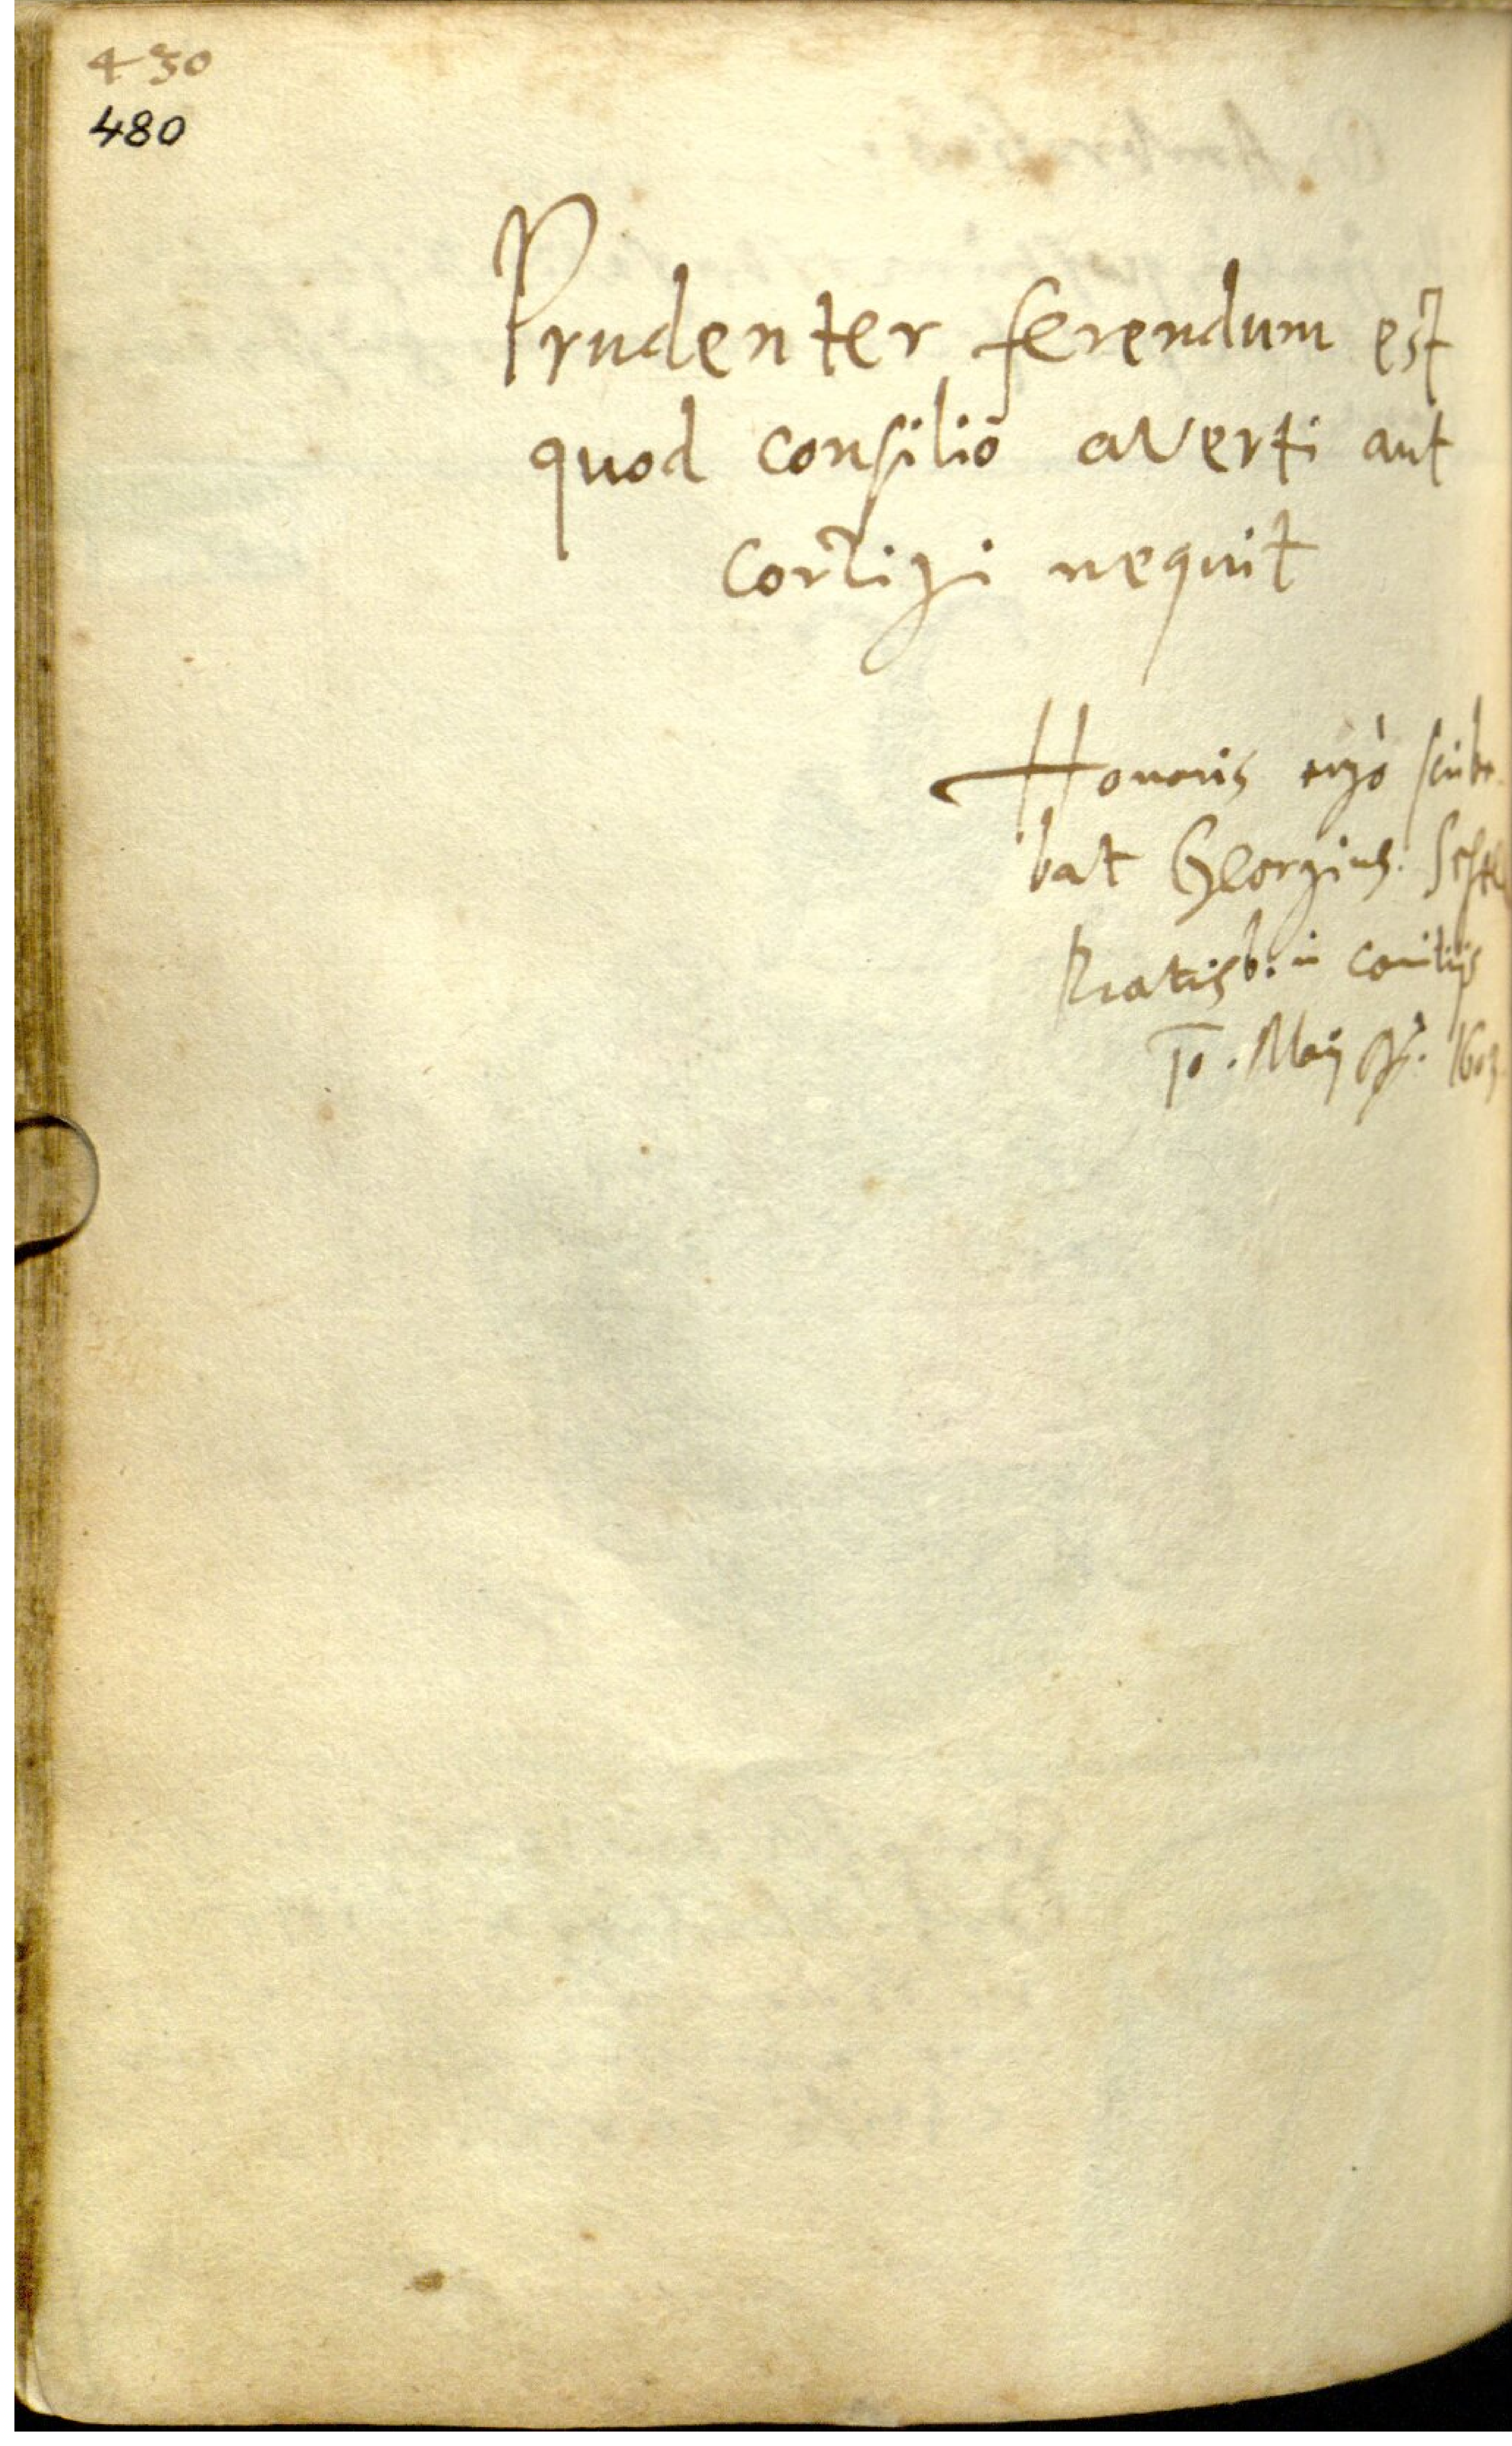 430
480
Prudenter ferendum est
quod consilio averti aut
corrigi nequit
Honoris ergò scribe-
bat Georgius.
Ratisb: in comitijs
10. Maij 1603.